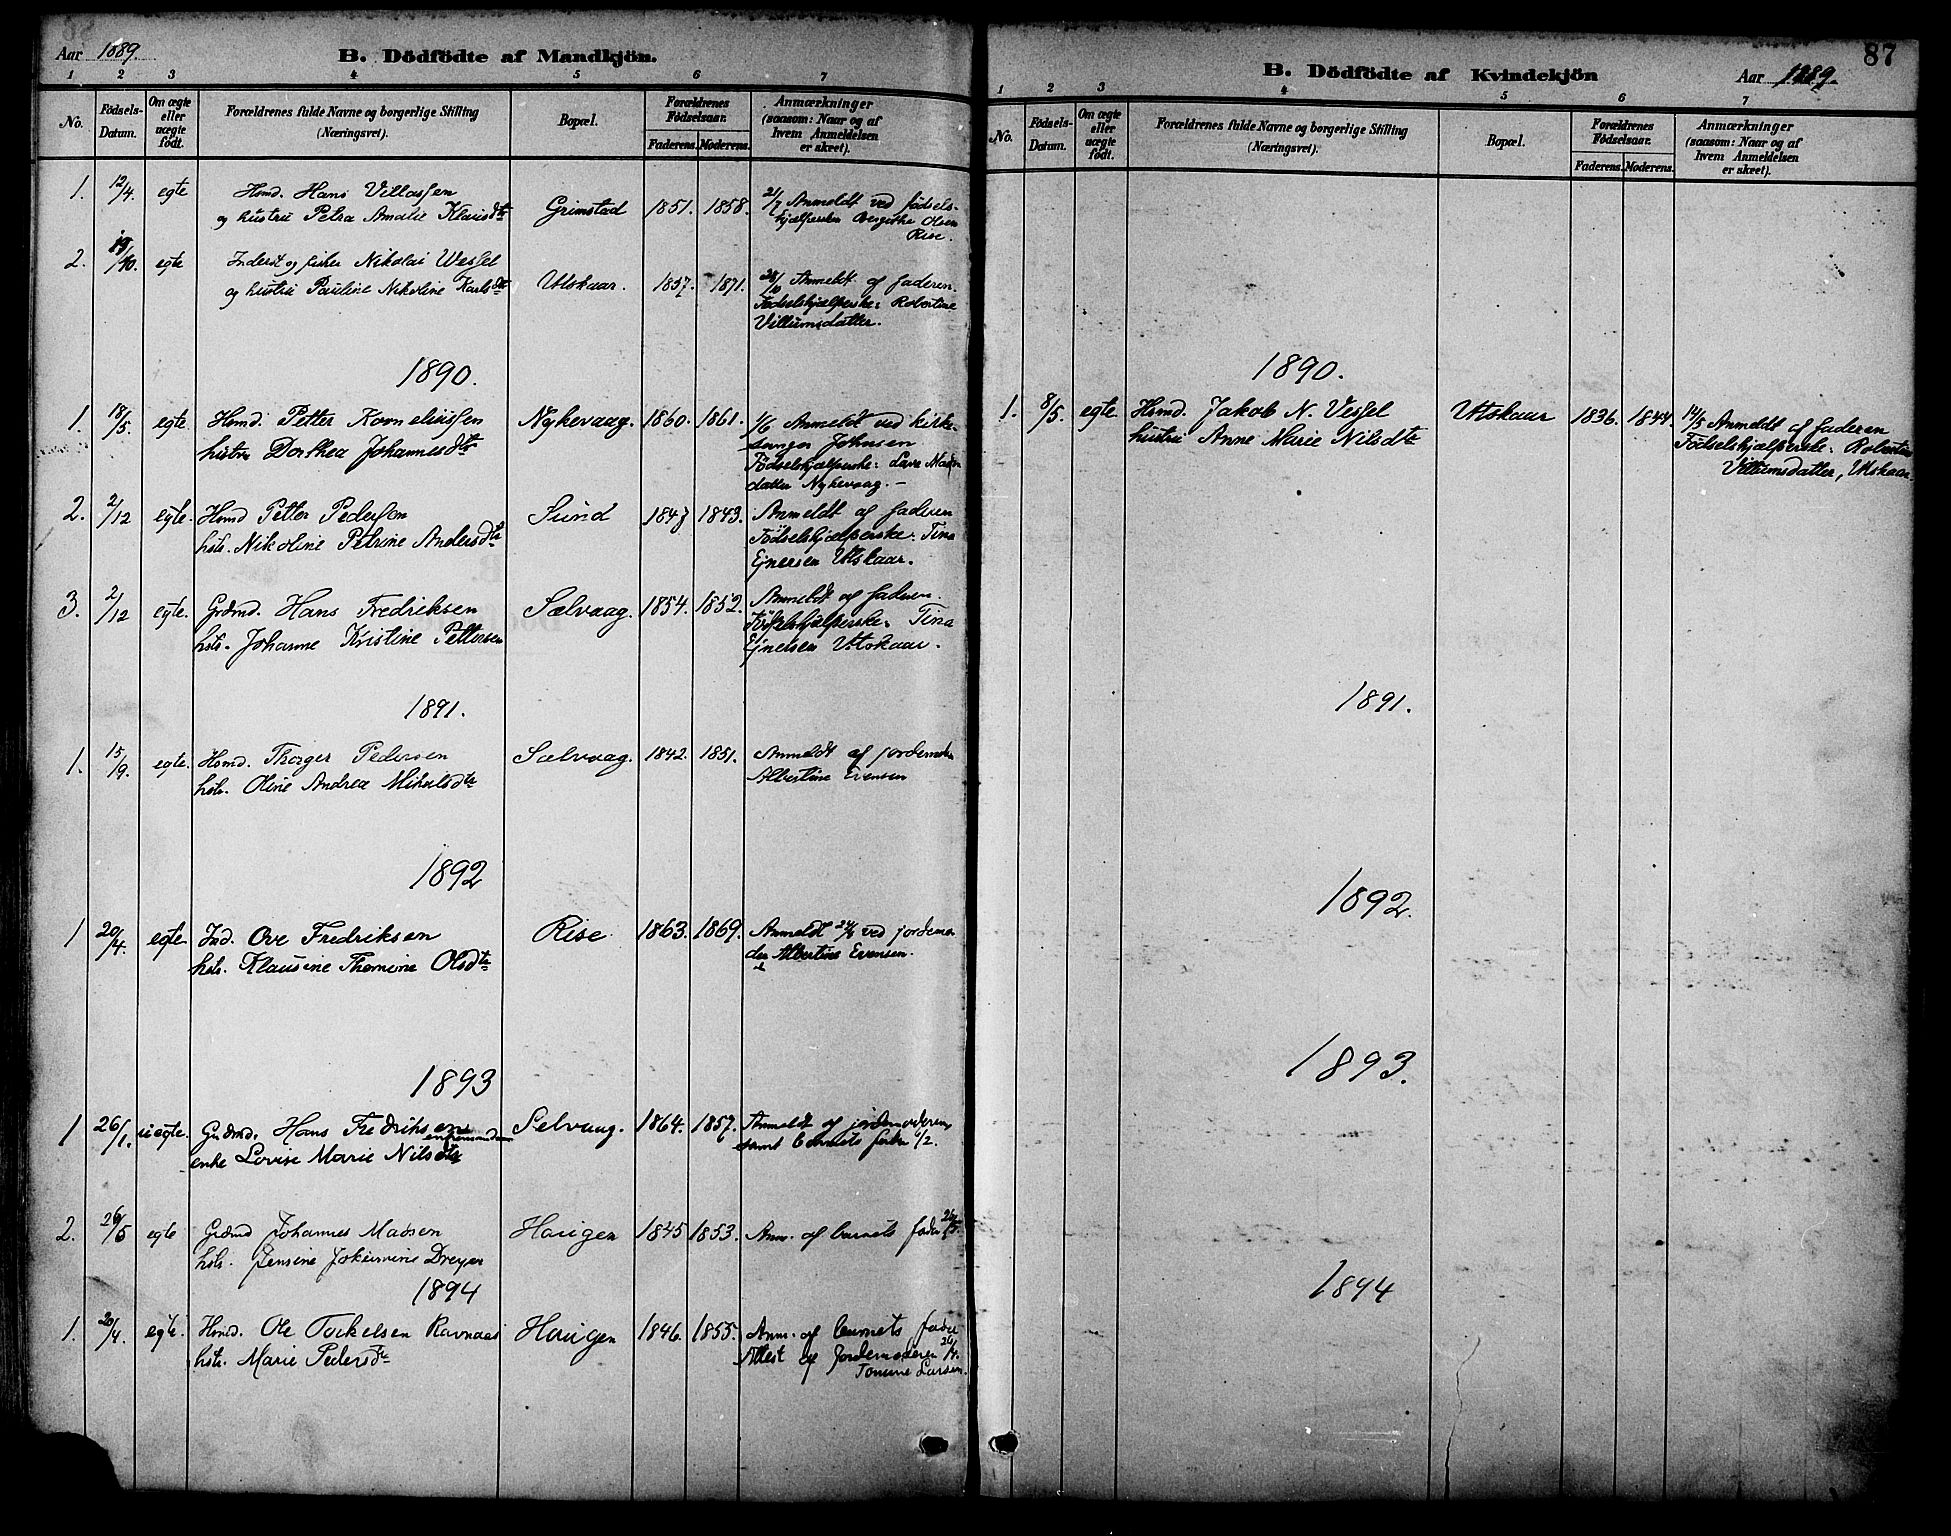 Aar 1889.
B. Dödfödte af Mandkjön.
1 2 3 4 5 6 7
No.
Födsels-Datum.
Om ægte eller uægte födt.
Forældrenes fulde Navne og borgerlige Stilling (Næringsvei).
Bopæl.
Forældrenes Födselsaar.
Faderens. Moderens.
Anmærkninger (saasom: Naar og af hvem Anmeldelsen er skeet).
1. 12/4. egte Hsmd. Hans Villassen Grimstad 1851. 1858. 21/7 Anmeldt ved fødsels-
og hustru Petra Amalie Klausdtr hjælpersken Olsen
Rise.
2. 19/10. egte Inderst og fisker Nikolai Wessel
og hustru Pauline Nikoline Karlsdtr Utskaar. 1857. 1871. 28/10 Anmeldt af faderen.
Fødselshjælperske: Robertine
Villumsdatter.
1890.
1. 18/5. egte Hsmd. Petter Korneliussen Nykevaag. 1860. 1861. 1/6 Anmeldt ved kirke-
hustru Dorthea Johannesdtr sanger Johnsen
Fødselshjælperske:
datter Nykevaag. -
2. 2/12 egte. Hsmd Petter Pedersen Sund 1843. Anmeldt af faderen
hstr. Nikoline Petrine Andersdtr Fødselshjælperske: Tina
Ejnersen Utskaar.
3. 2/12 egte. Grdmd. Hans Fredriksen Sælvaag. 1854. 1852. Anmeldt af faderen.
hstr. Johanne Kristine Pettersen Fødselshjælperske: Tina
Ejnersen Utskaar.
1891.
1. 15/9. egte. Hsmd. Thorger Pedersen Sælvaag. 1842. 1851. Anmeldt af jordemoder
hstr. Oline Andrea Mikalsdtr Albertine Evensen
1892
1 20/4. egte Ind. Ove Fredriksen Rise 1863. 1869. Anmeldt 24/4 ved jordemo-
hstr. Klausine Thomine Olsdtr der Albertine Evensen.
1893
1 26/1. uegte. Grdmd. Hans Fredriksen enkemand Selvaag. 1864. 1857. Anmeldt af jordemoderen
enke Lovise Marie Nilsdtr samt barnets fader 6/2
2. 26/5 egte Grdmd Johannes Madsen Haugen 1845 1853. Anm. af barnets fader 26/5.
hstr. Jensine Jokumine Dreyer
1894
1. 20/4. egte. Hsmd. Ole Torkelsen Ravnaas Haugen 1846. 1855. Anm. af barnets fader
hstr. Marie Pedersdtr Attest af Jordemoderen 26/4.
Tomine Larsen.
87
B. Dödfödte af Kvindekjön
Aar 1889.
1 2 3 4 5 6 7
No.
Födsels-Datum.
Om ægte eller uægte födt.
Forældrenes fulde Navne og borgerlige Stilling (Næringsvei).
Bopæl.
Forældrenes Födselsaar.
Faderens. Moderens.
Anmærkninger (saasom: Naar og af hvem Anmeldelsen er skeet).
1890.
1. 8/5. egte. Hsmd. Jakob N. Vessel Utskaar 1836. 1844. 14/5 Anmeldt af faderen
hustru Anne Marie Nilsdtr Fødselshjælperske: Robertine
Villumsdatter, Utskaar.
1891.
1892.
1893.
1894